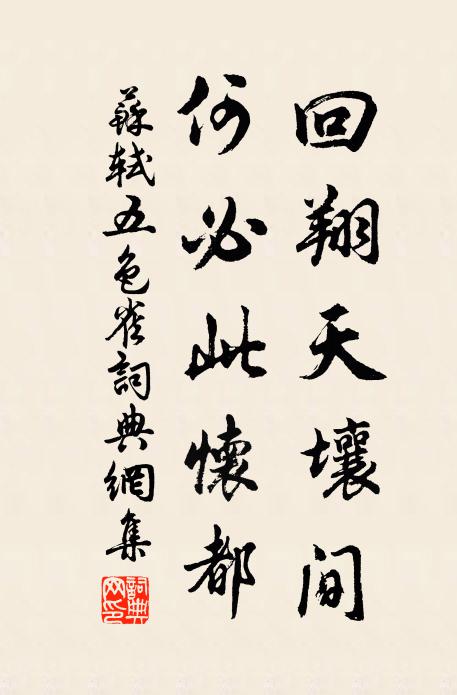 回翔天壤間
何必此懷都
蘇軾五色雀詞典網集
詞典網印